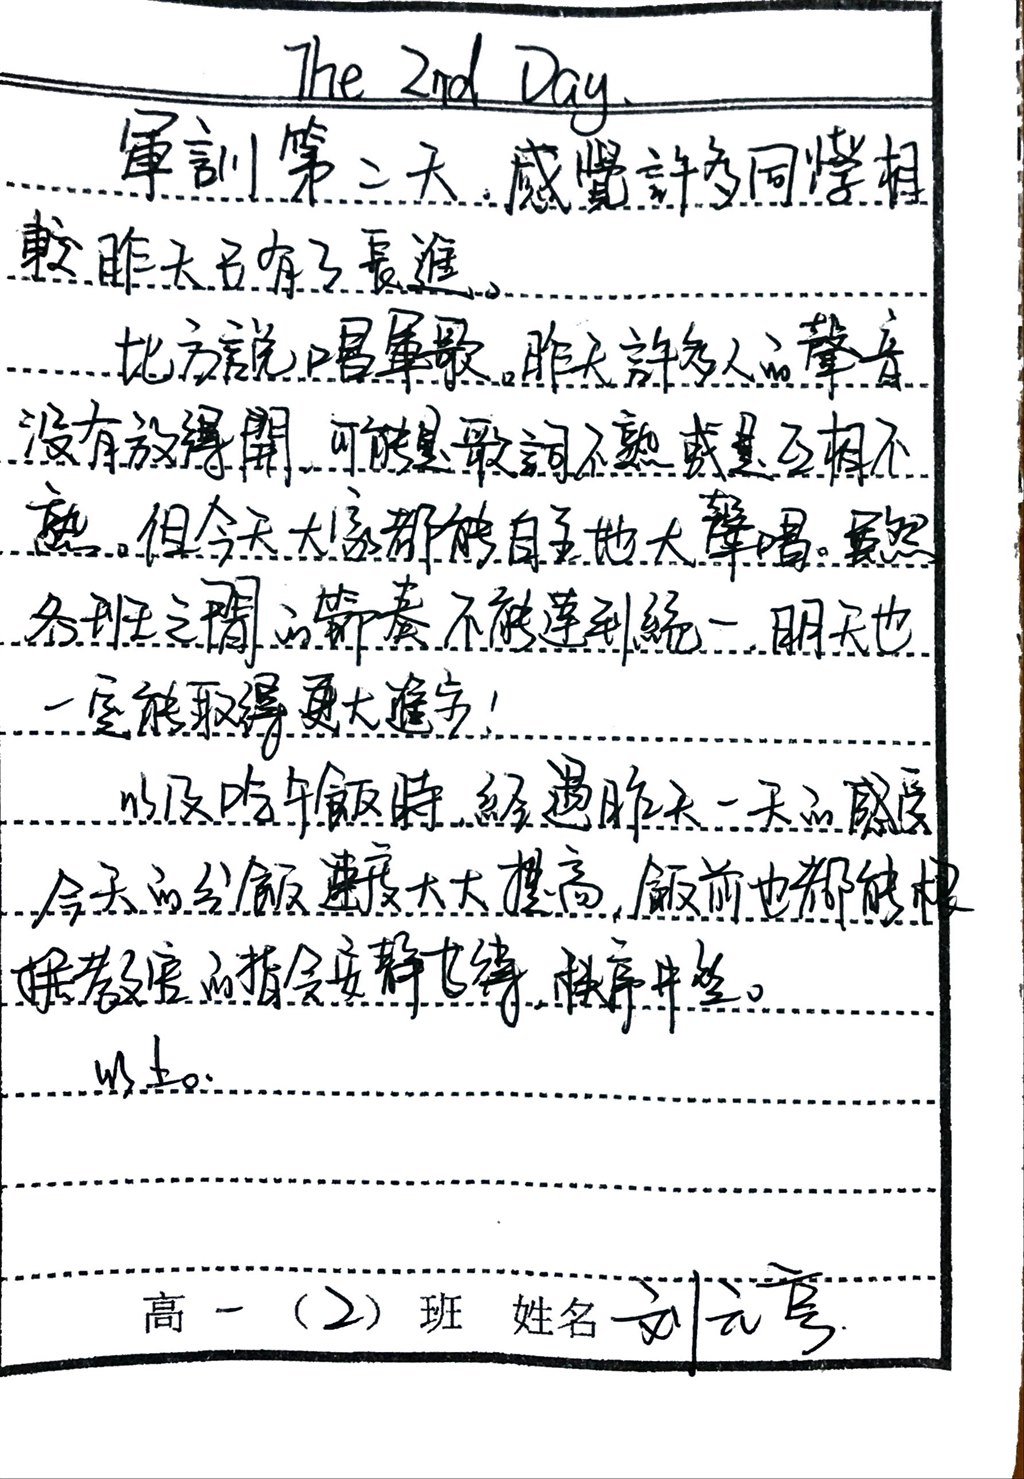 The 2nd Day.
軍訓第二天,感覺許多同學相
較昨天已有了長進。
比方說唱軍歌。昨天許多人的聲音
没有放得開,可能是歌詞不熟或是互相不
熟。但今天大家都能自主地大聲唱。虽然
各班之間的節奏不能達到統一,明天也
一定能取得更大進步!
以及吃午飯時,經過昨天一天的感受
今天的分飯速度大大提高,飯前也都能根
据教官的指令安静等待,秩序井然。
以上。
高一(2)班 姓名 刘元亨.